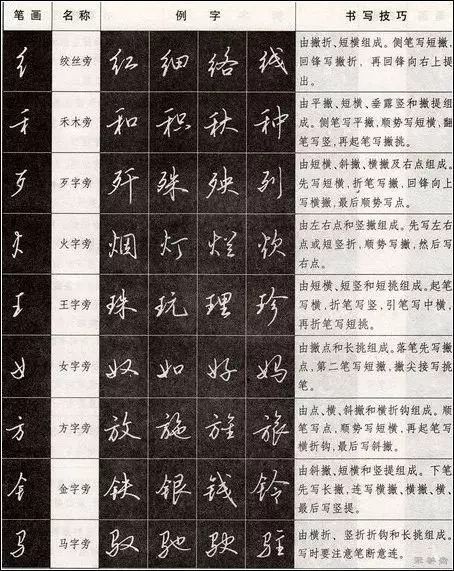 笔画 名称 例字 书写技巧
纟 绞丝旁 红 细 络 线
由撇折、短横组成。侧笔写短撇,
回锋写撇折, 再回锋向右上提
出。
禾 禾木旁 和 积 秋 种
由平撇、短横、垂露竖和撇提组
成。侧笔写平撇,顺势写短横,翻
笔写竖,再起笔写撇挑。
歹 歹字旁 歼 殊 殃 列
由短横、斜撇、横撇及右点组成。
先写短横,折笔写撇,回锋向上
写横撇,最后顺势写点。
火 火字旁 烟 灯 炊
由左右点和竖撇组成。先写左右
点或短竖折,顺势写撇,然后写
右点。
王 王字旁 珠 玩 理 珍
由短横、短竖和短挑组成。起笔
写横,折笔写竖、引笔写中横,
再折笔写短挑。
女 女字旁 奴 如 好 妈
由撇点和长挑组成。落笔先写撇
点,第二笔写短撇,撇尖接写挑
笔。
方 方字旁 放 施 旌 旅
由点、横、斜撇和横折钩组成。顺
笔写点,顺势写短横,再起笔写
横折钩,最后写斜撇。
钅 金字旁 铁 银 钱 铃
由斜撇、短横和竖提组成。下笔
先写长撇,连写横撇、横撇、横、
最后写竖提。
马 马字旁 驭 驰 驶 驻
由横折、竖折折钩和长挑组成。
写时要注意笔断意连。